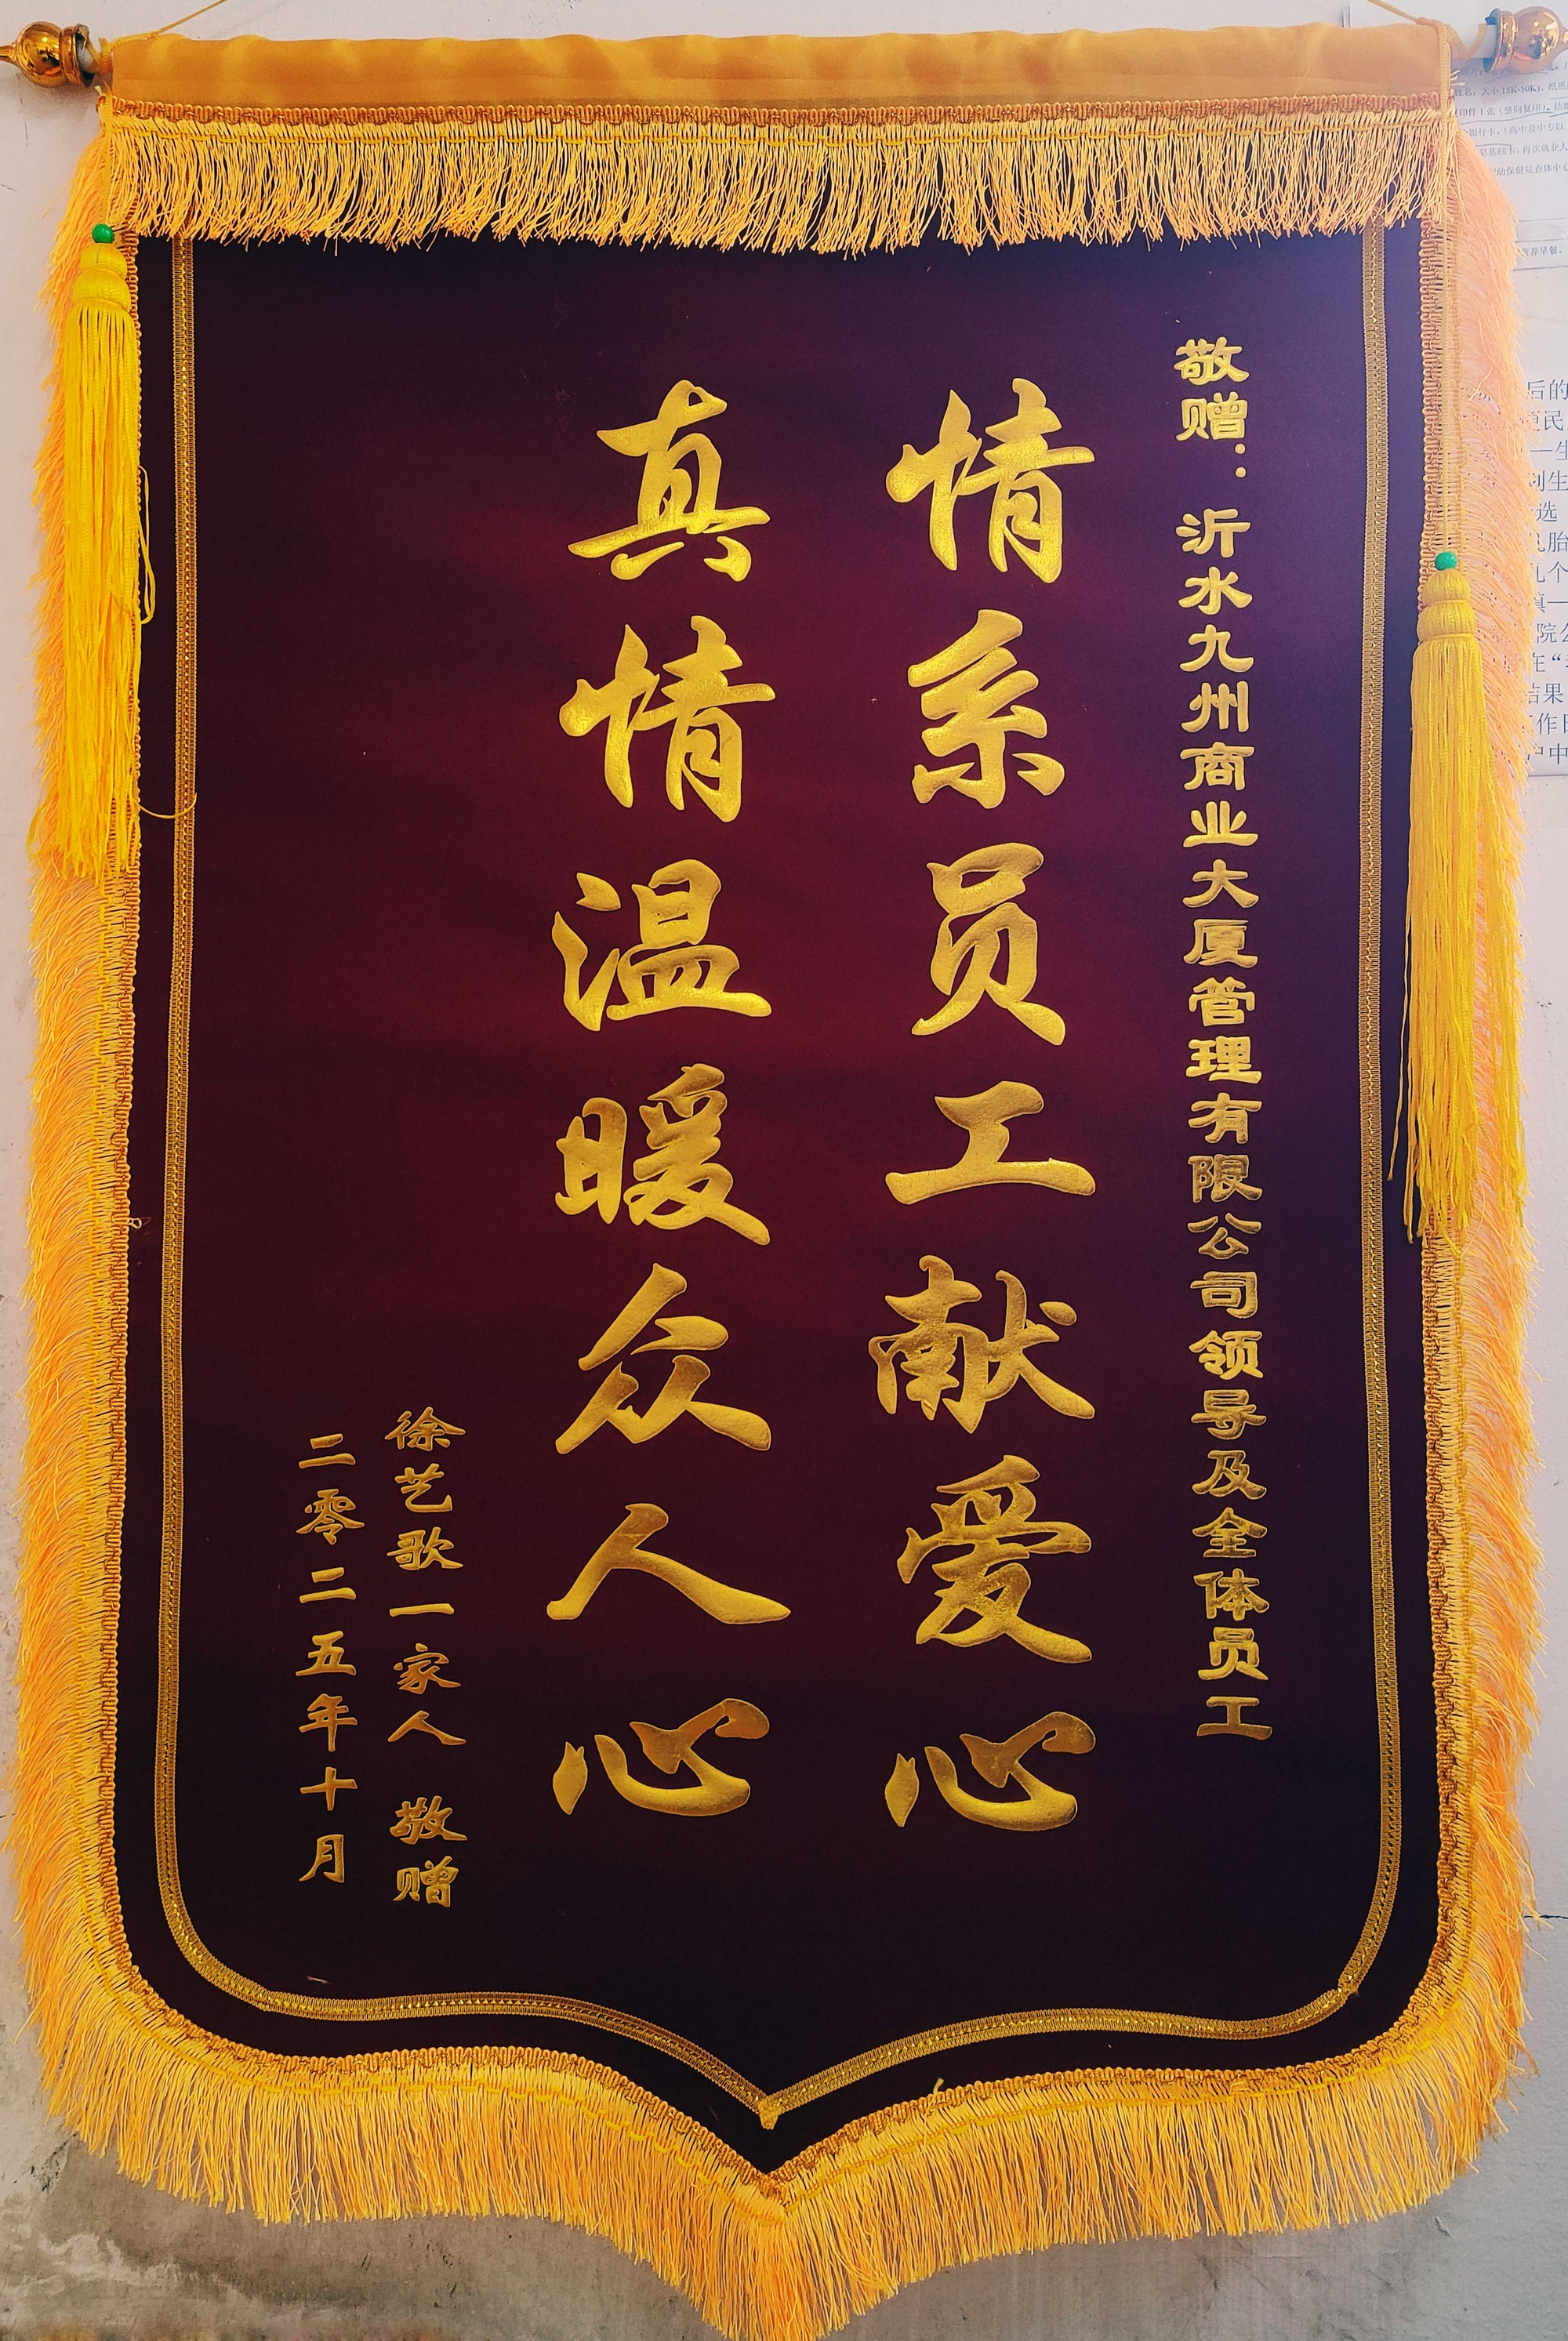 敬赠：沂水九州商业大厦管理有限公司领导及全体员工
情系员工献爱心
真情温暖众人心
徐艺歌一家人 敬赠
二零二五年十月